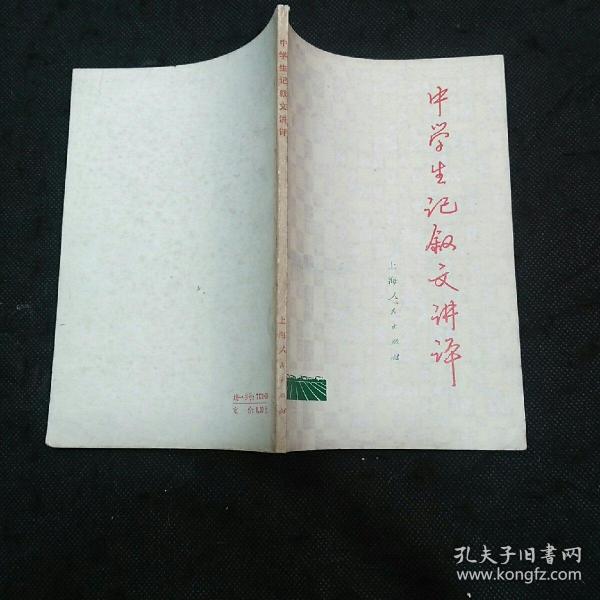 中学生记叙文讲评
上海人民出版社
中学生记叙文讲评
上海人民出版社
孔夫子旧书网
www.kongfz.com